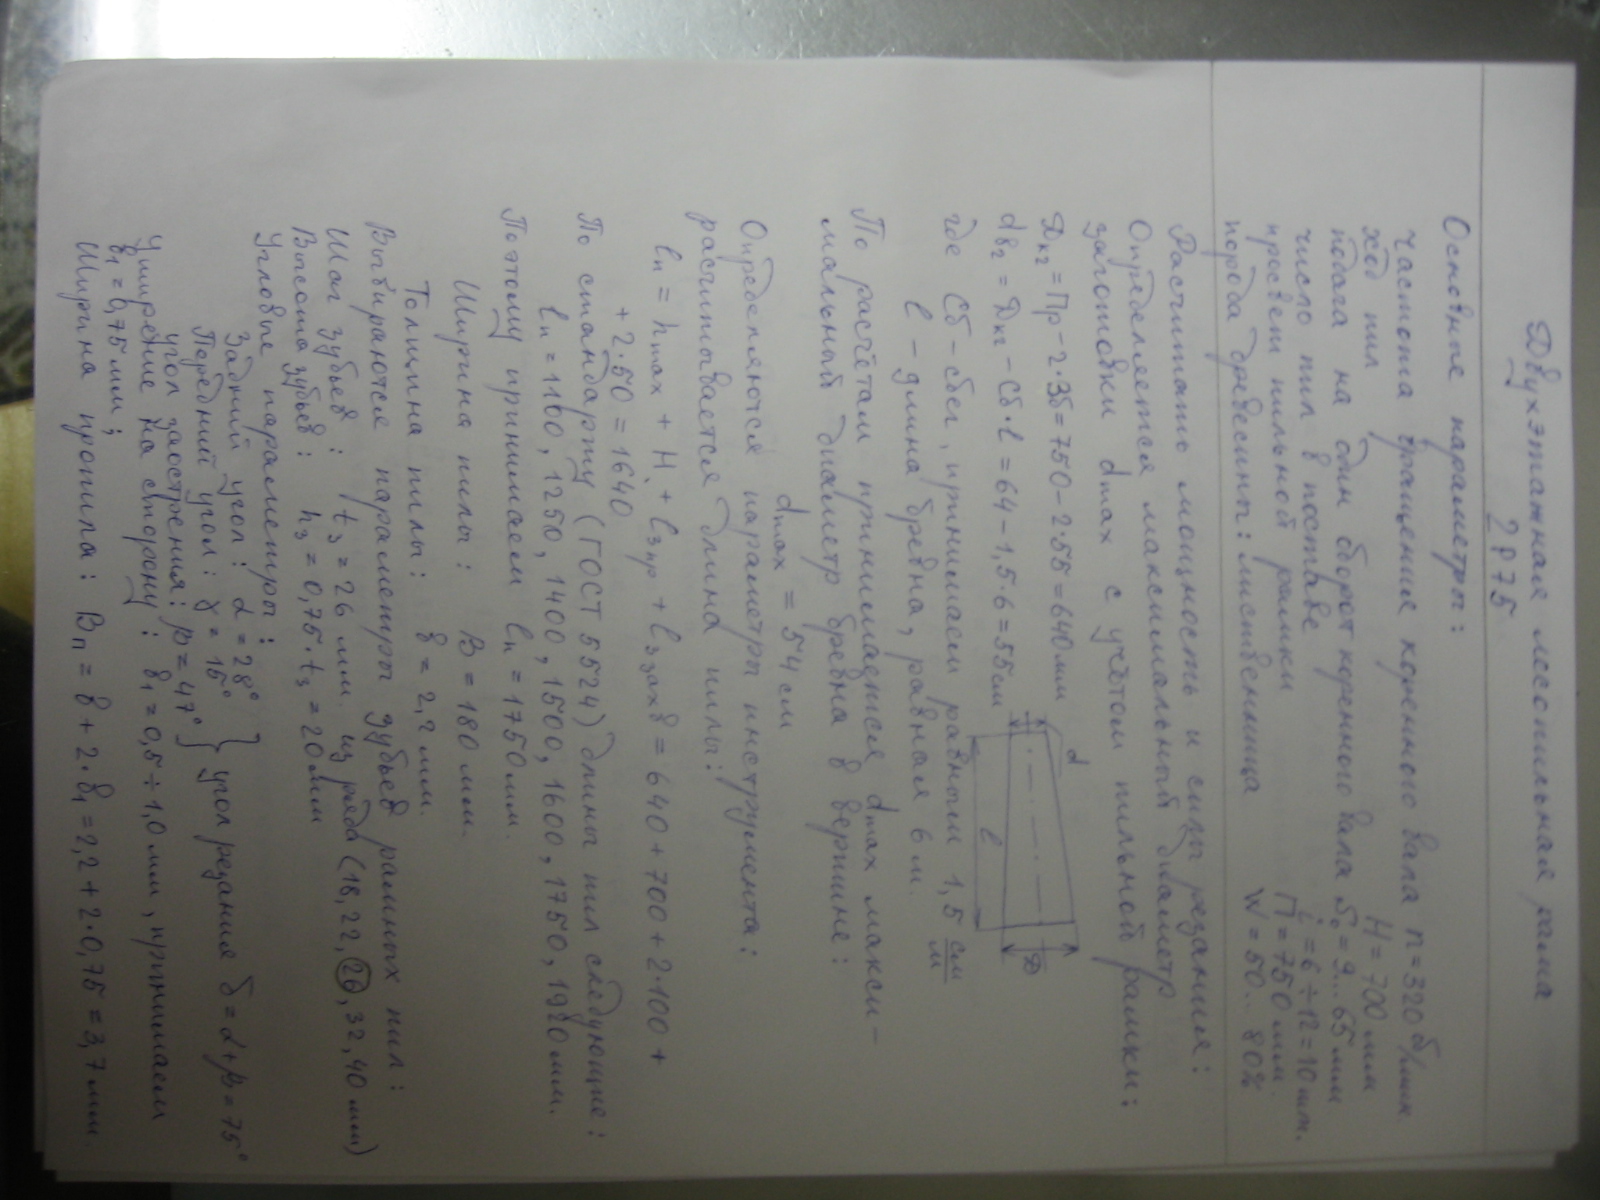 Двухэтажная лесопильная рама
2Р75
Основные параметры:
частота вращения коренного вала n = 320 об/мин.
ход пил H = 700 мм
подача на один оборот коренного вала So = 9...65 мм
число пил в поставе i = 6 ÷ 12 = 10 шт.
просвет пильной рамки П = 750 мм.
порода древесины: лиственница W = 50...80%
Расчитать мощность и силы резания:
Определяется максимальный диаметр
заготовки dmax с учётом пильной рамки:
Дк2 = Пр - 2·35 = 750 - 2·55 = 640 мм
dв2 = Дк2 - Сб·l = 64 - 1,5·6 = 55 см
d
l
Д
где Сб - сбег, принимаем равным 1,5 см/м
l - длина бревна, равная 6 м.
По расчётам принимается dmax макси-
мальный диаметр бревна в вершине:
dmax = 54 см
Определяются параметры инструмента:
расчитывается длина пилы:
lп = hmax + H + lзпр + lззахв = 640 + 700 + 2·100 +
+ 2·50 = 1640
По стандарту (ГОСТ 5524) длины пил следующие:
lп = 1160, 1250, 1400, 1500, 1600, 1750, 1920 мм.
Поэтому принимаем lп = 1750 мм.
Ширина пилы: B = 180 мм.
Толщина пилы: в = 2,2 мм.
Выбираются параметры зубьев рамных пил:
Шаг зубьев: tз = 26 мм. из ряда (18, 22, 26, 32, 40 мм)
Высота зубьев: hз = 0,75·tз = 20 мм
Угловые параметры:
Задний угол: α = 28°
Передний угол: γ = 15°
угол заострения: β = 47° } угол резания δ = α + β = 75°
Уширение на сторону: в1 = 0,5 ÷ 1,0 мм, принимаем
в1 = 0,75 мм;
Ширина пропила: Вп = в + 2·в1 = 2,2 + 2·0,75 = 3,7 мм.